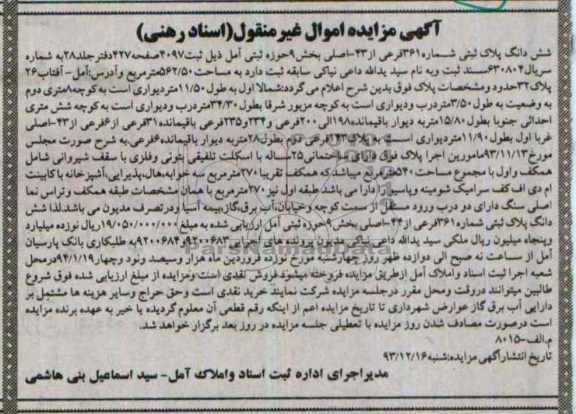 آگهی مزایده اموال غیرمنقول(اسناد رهنی)
شش دانگ پلاک ثبتی شماره۳۶۱فرعی از۴۳-اصلی بخش۹حوزه ثبتی آمل ذیل ثبت۴۰۹۷صفحه۴۲۷دفترجلد۲۸به شماره
سریال۶۳۰۸۰۴مسند ثبت وبه نام سید یدالله داعی نیاکی سابقه ثبت دارد به مساحت۵۶۲/۵۰مترمربع وآدرس:آمل- آفتاب۲۶
پلاک۳۲حدود ومشخصات پلاک فوق بدین شرح اعلام می گردد:شمالا اول به طول۱۱/۵۰متردیواری است به کوچه۸متری دوم
به وضعیت به طول۳/۵۰متردرب ودیواری است به کوچه مزبور شرقا بطول۳۴/۳۰متردرب ودیواری است به کوچه شش متری
احداثی جنوبا بطول۱۵/۸۰متربه دیوار باقیمانده۱۹۸الی۲۰۰فرعی و۲۳۴و۲۳۵فرعی باقیمانده۳۱فرعی از۶فرعی از۴۳-اصلی
غربا اول بطول۱۱/۹۰متردیواری است به پلاک۱۴۳فرعی دوم بطول۲۸متربه دیوار باقیمانده۶فرعی،به شرح صورت مجلس
مورخ۹۳/۱۱/۱۳مامورین اجرا پلاک فوق دارای ساختمانی۲۵ساله با اسکلت تلفیقی بتونی وفلزی با سقف شیروانی شامل
همکف واول با مجموع مساحت۵۴۰مترمربع میباشدکه همکف تقریبا۲۷۰مترمربع سه خوابه،هال،پذیرایی،آشپزخانه با کابینت
ام دی اف کف سرامیک شومینه وپاسیو را دارا می باشد.طبقه اول نیز۲۷۰مترمربع با همان مشخصات طبقه همکف وتراس نما
اصلی سنگ دارای دو درب ورود مستقل از سمت کوچه وخیابان،آب برق،گاز،بیمه آسیا ودرتصرف مدیون می باشد.لذا شش
دانگ پلاک ثبتی شماره۳۶۱فرعی از۴۳-اصلی بخش۹حوزه ثبتی آمل ارزیابی شده به مبلغ ۱۹/۰۵۰/۰۰۰/۰۰۰ریال نوزده میلیارد
وپنجاه میلیون ریال ملکی سید یدالله داعی نیاکی مدیون پرونده های اجرایی۹۲۰۰۶۸۳و۹۲۰۰۶۸۴به طلبکاری بانک پارسیان
آمل از ساعت نه صبح الی دوازده ظهر روز چهارشنبه مورخ نوزده فروردین ماه هزار وسیصد ونود وچهار۹۴/۰۱/۱۹درمحل
شعبه اجرا ثبت اسناد واملاک آمل ازطریق مزایده فروخته میشود فروش نقدی است ومزایده از مبلغ ارزیابی شده فوق شروع
طالبین میتوانند دروقت ومحل مقرر درجلسه مزایده شرکت نمایند خرید نقدی است وحق حراج وسایر هزینه ها مشتمل بر
دارایی آب برق گاز عوارض شهرداری تا تاریخ مزایده اعم از اینکه رقم قطعی آن معلوم گردیده یا خیر به عهده برنده مزایده
است درصورت مصادف شدن روز مزایده با تعطیلی جلسه مزایده در روز بعد برگزار خواهد شد.
م.الف-۸۰۱۵
تاریخ انتشارآگهی مزایده:شنبه۹۳/۱۲/۱۶
مدیراجرای اداره ثبت اسناد واملاک آمل- سید اسماعیل بنی هاشمی